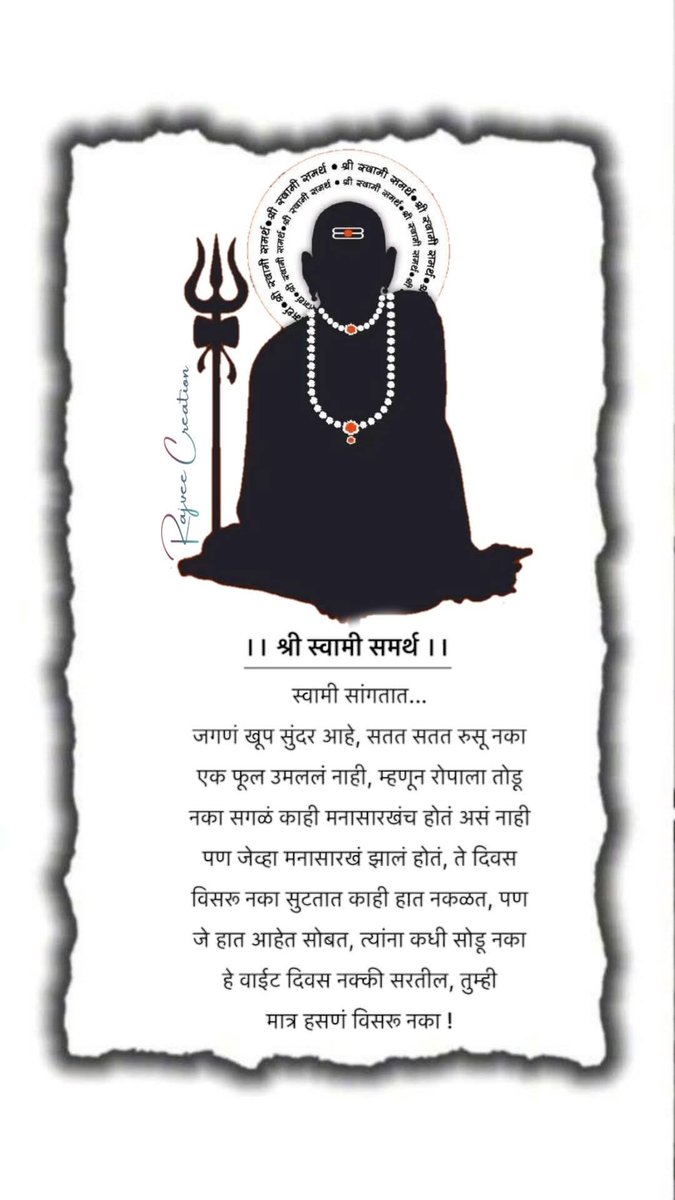 श्री स्वामी समर्थ • श्री स्वामी समर्थ • श्री स्वामी समर्थ • श्री
समर्थ • श्री स्वामी समर्थ • श्री स्वामी समर्थ • श्री स्वामी समर्थ • श्री
Rajvee Creation
।। श्री स्वामी समर्थ ।।
स्वामी सांगतात...
जगणं खूप सुंदर आहे, सतत सतत रुसू नका
एक फूल उमललं नाही, म्हणून रोपाला तोडू
नका सगळं काही मनासारखंच होतं असं नाही
पण जेव्हा मनासारखं झालं होतं, ते दिवस
विसरू नका सुटतात काही हात नकळत, पण
जे हात आहेत सोबत, त्यांना कधी सोडू नका
हे वाईट दिवस नक्की सरतील, तुम्ही
मात्र हसणं विसरू नका !